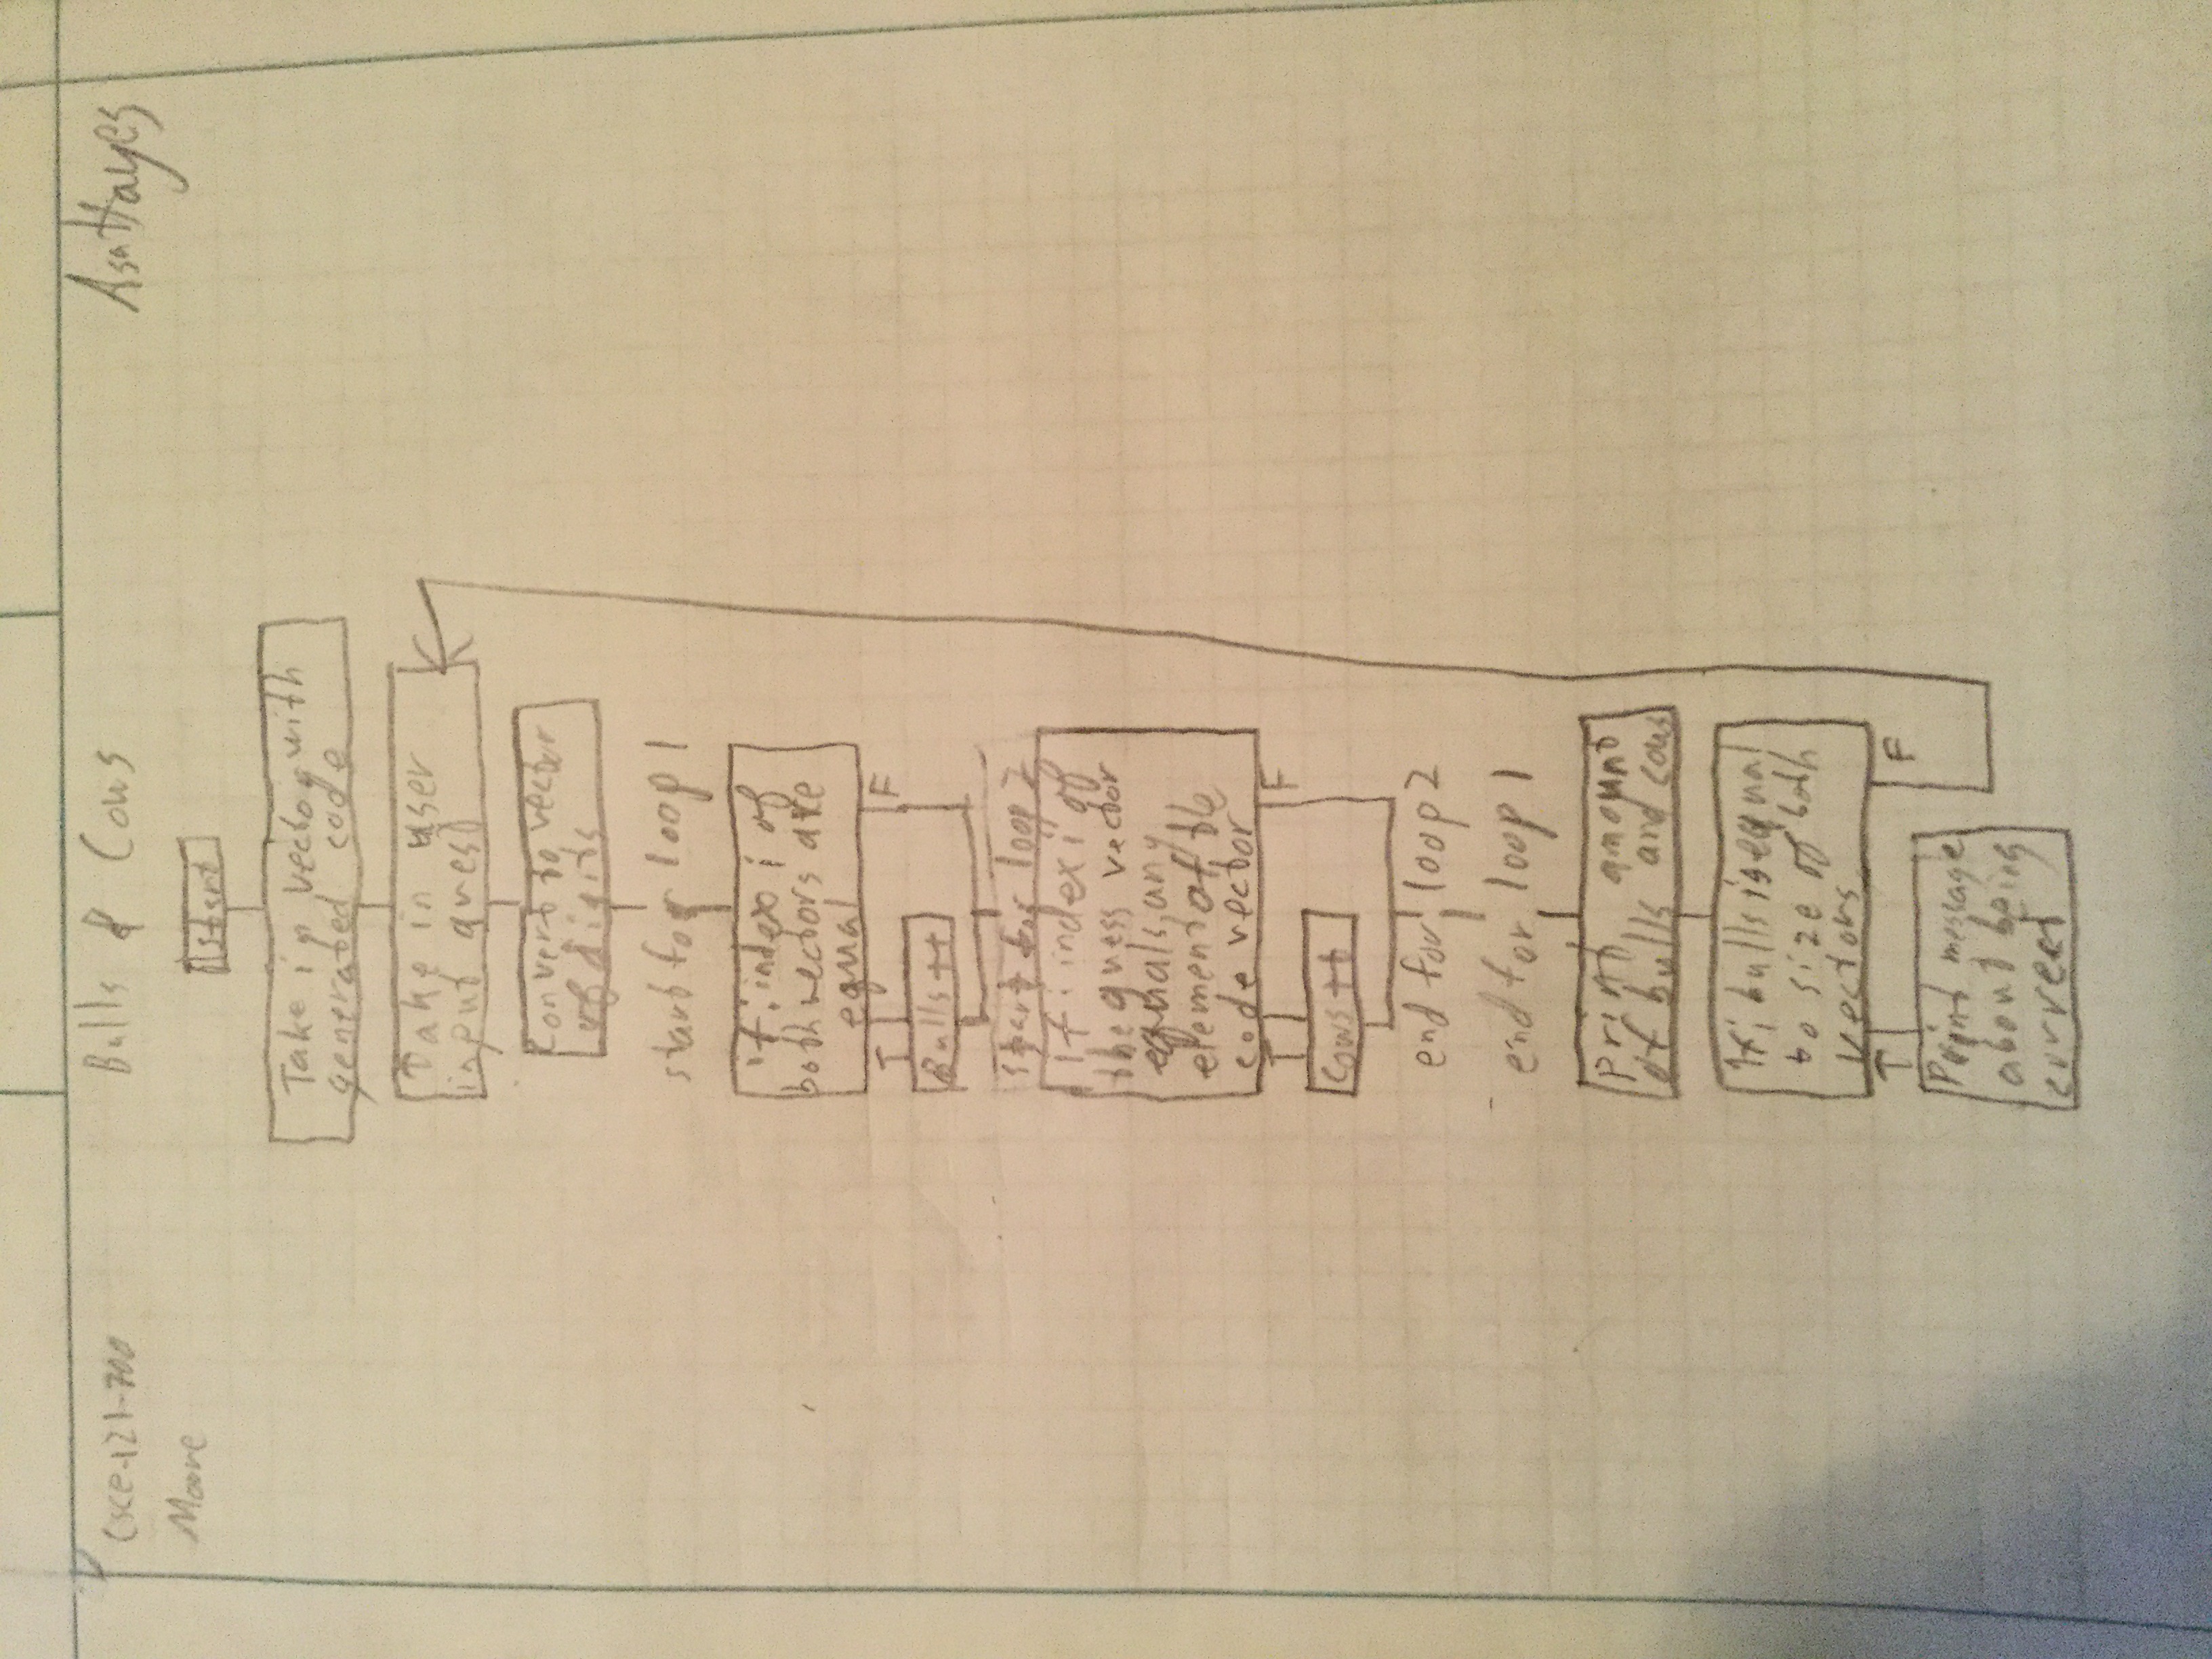 Csce-121-700
Moore
Bulls & Cows
Asa Hayes
start
Take in vector with
generated code
Take in user
input guess
Convert to vector
of digits
start for loop 1
if: index i of
both vectors are
equal
T
F
Bulls ++
start for loop 2
if: index i of
the guess vector
equals any
element of the
code vector
T
F
Cows ++
end for loop 2
end for loop 1
print amount
of bulls and cows
If: bulls is equal
to size of both
vectors
T
F
Print message
about being
correct